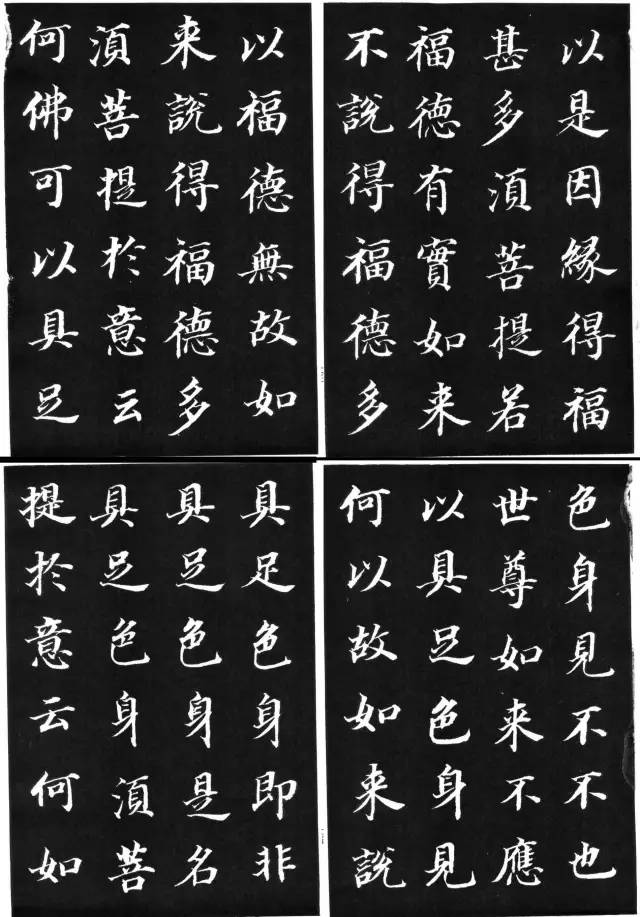 以是因縁得福
甚多須菩提若
福德有實如来
不說得福德多
以福德無故如
来說得福德多
須菩提於意云
何佛可以具足
色身見不不也
世尊如来不應
以具足色身見
何以故如来說
具足色身即非
具足色身是名
具足色身須菩
提於意云何如